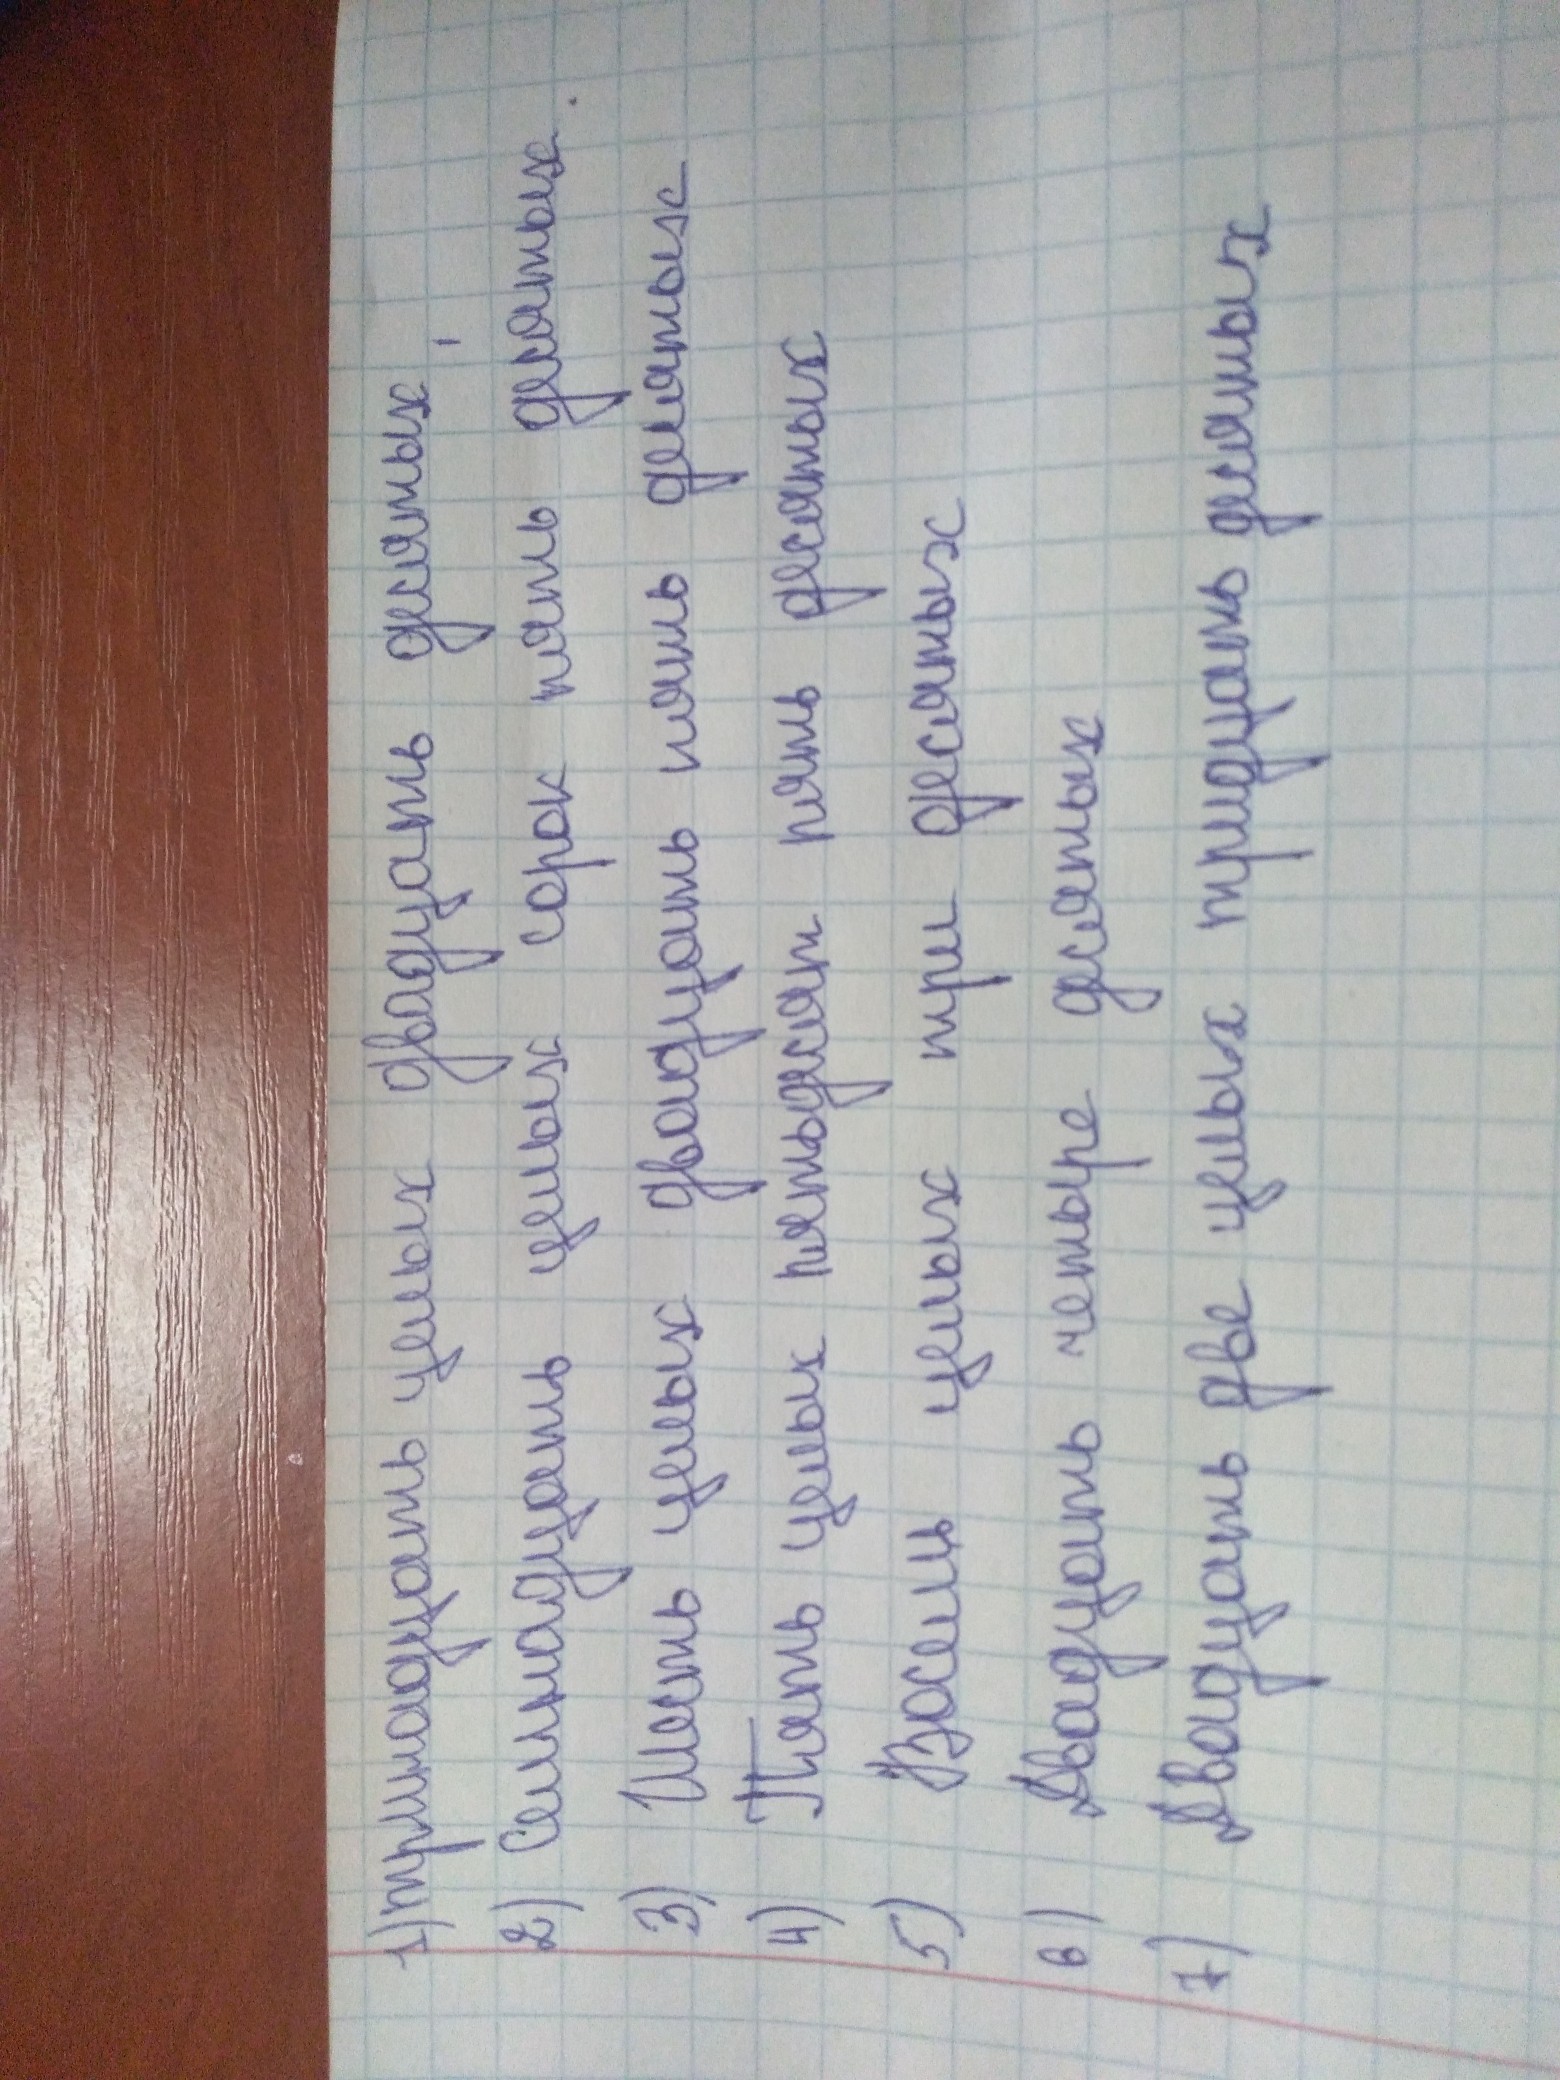 1) тринадцать целых двадцать десятых
2) Семнадцать целых сорок пять десятых.
3) Шесть целых двадцать пять десятых
4) Пять целых пятьдесят пять десятых
5) Восемь целых три десятых
6) Двадцать четыре десятых
7) Двадцать две целых тридцать десятых